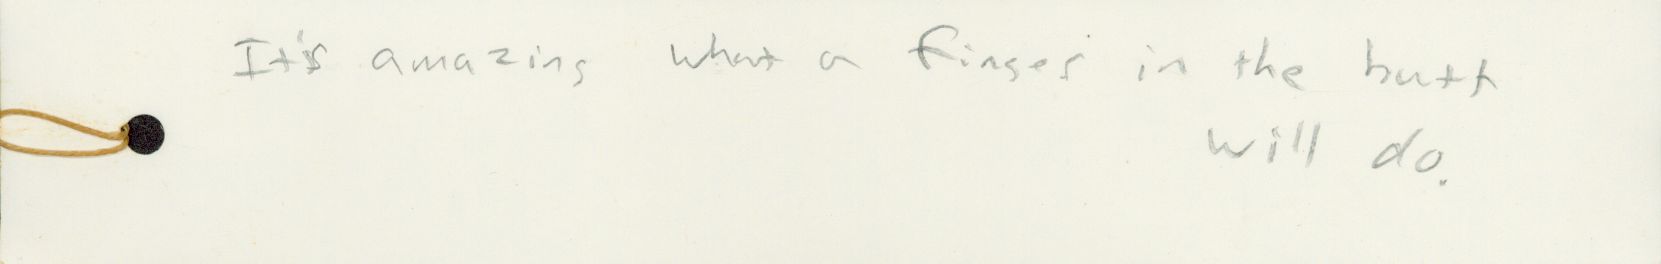 It's amazing what a finger in the butt
will do.